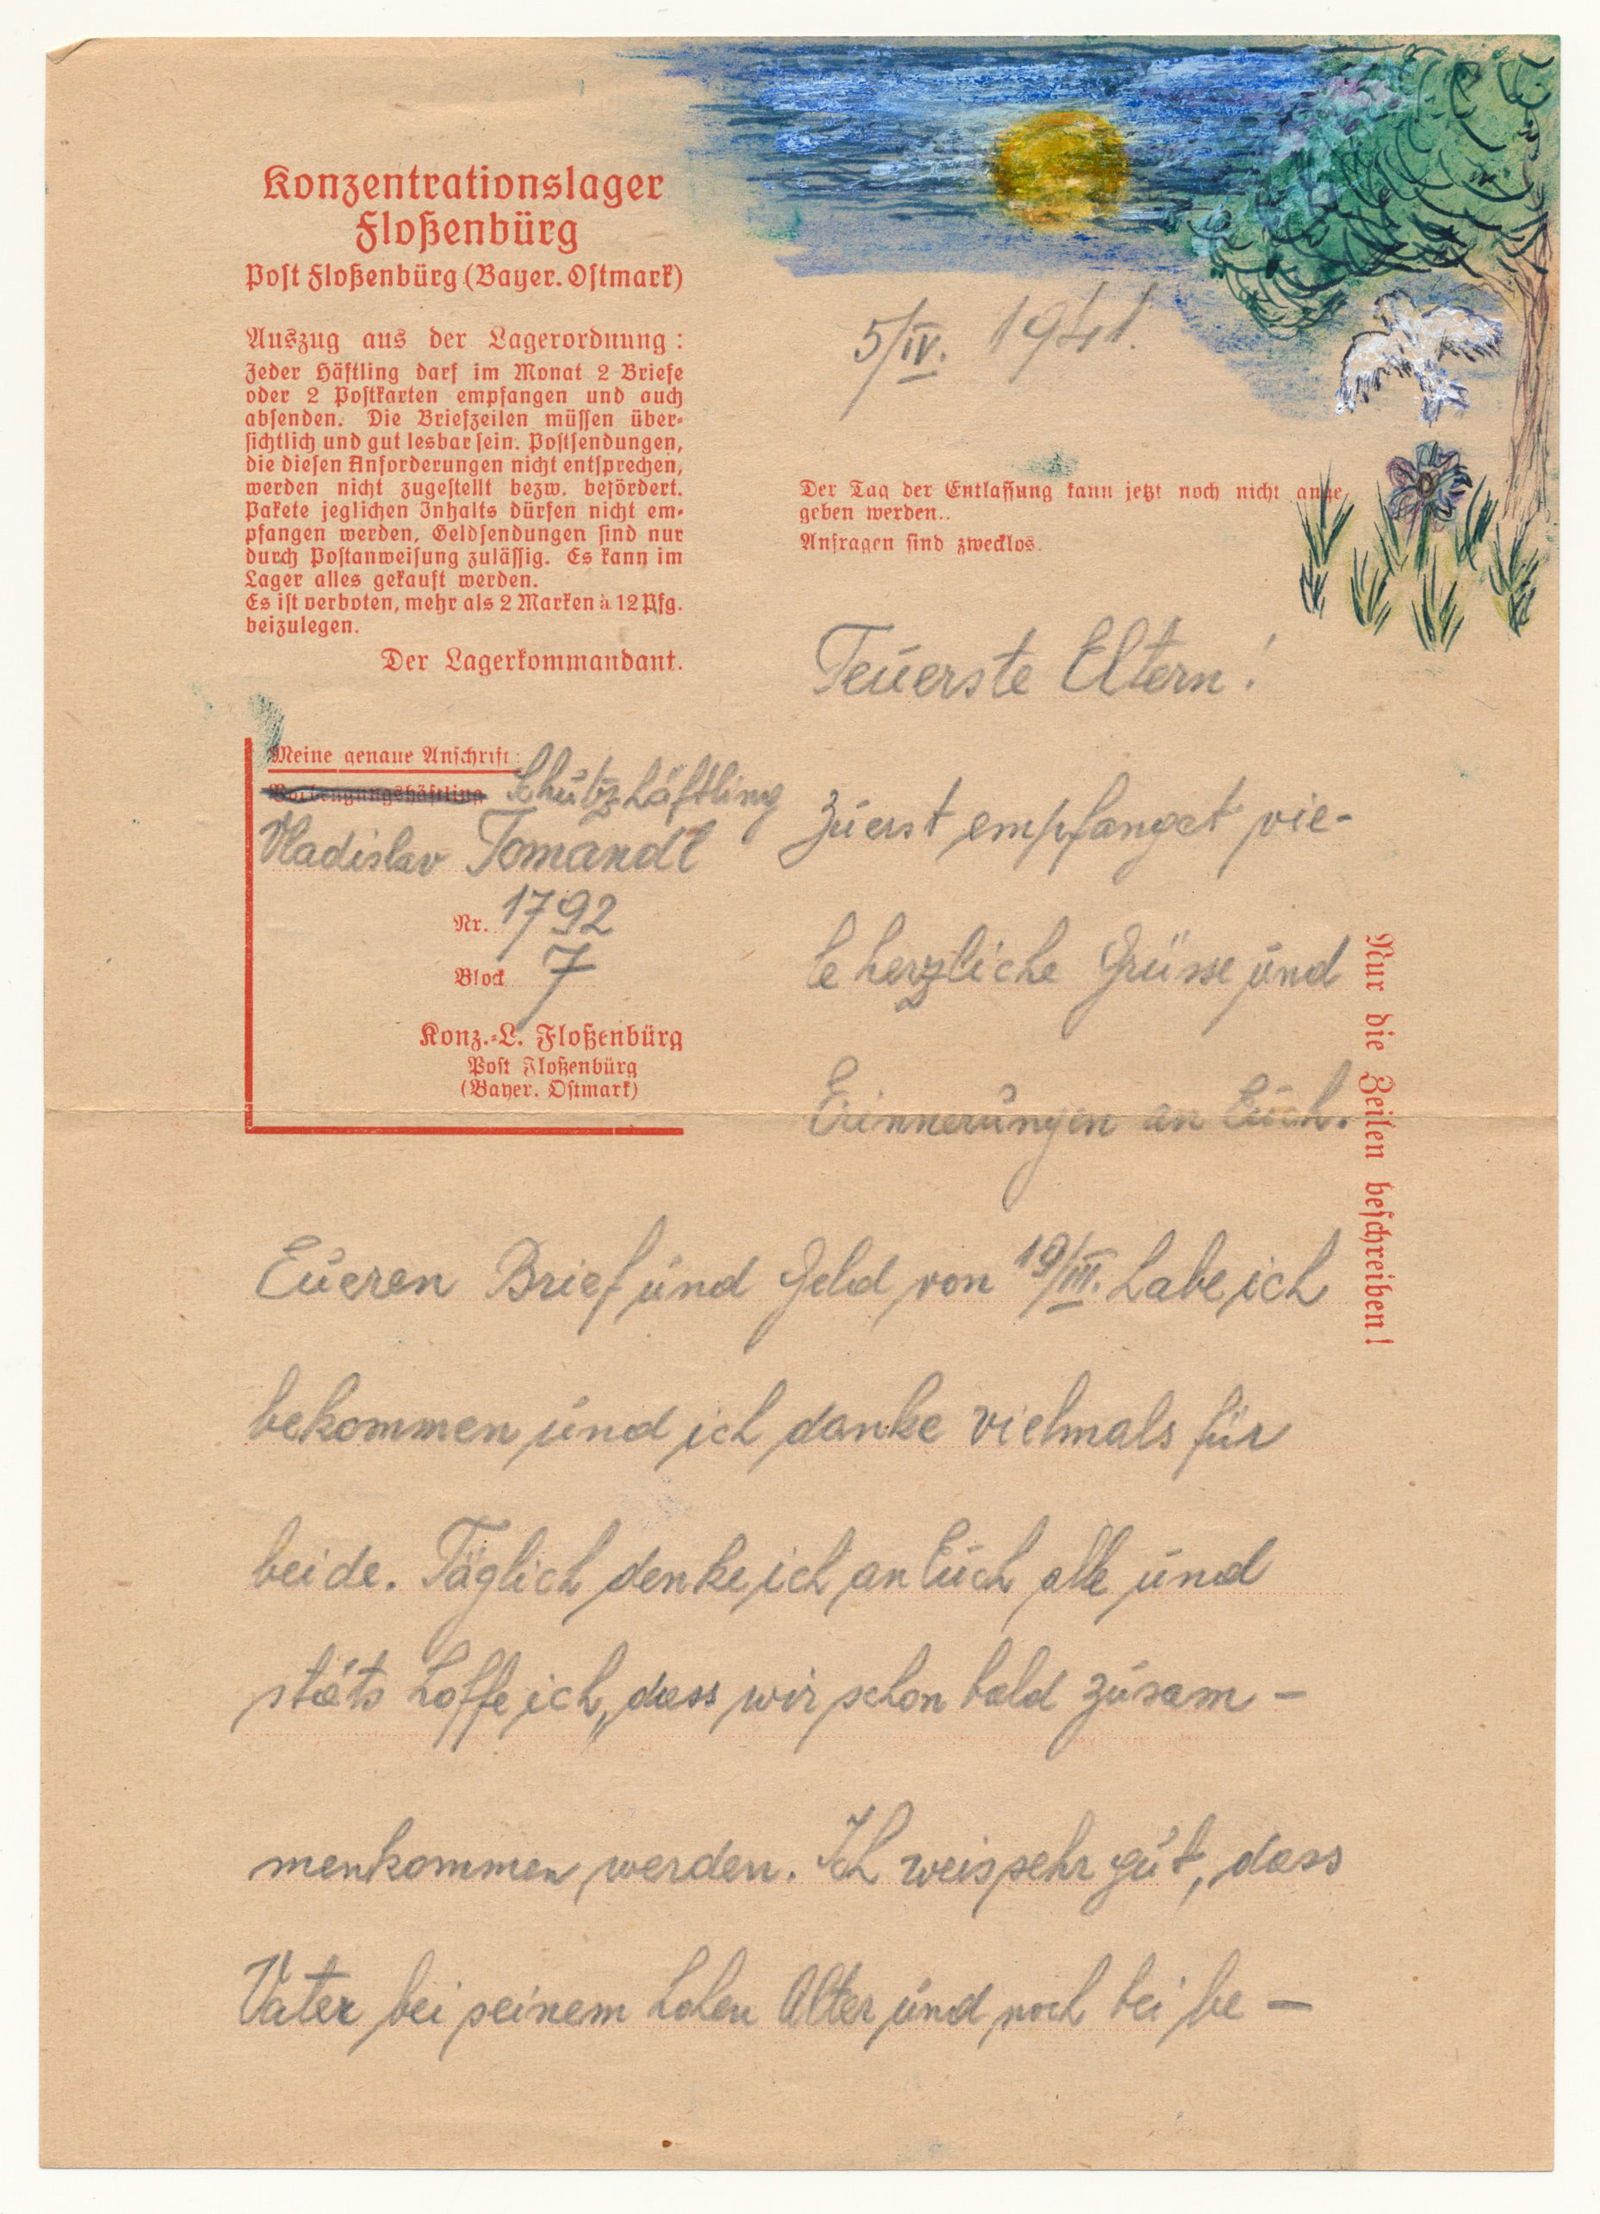 Konzentrationslager
Floßenbürg
Post Floßenbürg (Bayer. Ostmark)
Auszug aus der Lagerordnung:
Jeder Häftling darf im Monat 2 Briefe
oder 2 Postkarten empfangen und auch
absenden. Die Briefzeilen müssen über-
sichtlich und gut lesbar sein. Postsendungen,
die diesen Anforderungen nicht entsprechen,
werden nicht zugestellt bezw. befördert.
Pakete jeglichen Inhalts dürfen nicht em-
pfangen werden, Geldsendungen sind nur
durch Postanweisung zulässig. Es kann im
Lager alles gekauft werden.
Es ist verboten, mehr als 2 Marken à 12 Pfg.
beizulegen.
Der Lagerkommandant.
Meine genaue Anschrift:
Schutzhäftling
Vladislav Tomandl
Nr. 1792
Block 7
Konz.-L. Floßenbürg
Post Floßenbürg
(Bayer. Ostmark)
5/IV. 1941.
Der Tag der Entlassung kann jetzt noch nicht ange
geben werden..
Anfragen sind zwecklos.
Teuerste Eltern!
Zuerst empfanget vie-
le herzliche Grüsse und
Erinnerungen an Euch.
Nur die Zeilen beschreiben!
Eueren Brief und Geld von 19/III. habe ich
bekommen und ich danke vielmals für
beide. Täglich denke ich an Euch alle und
stäts hoffe ich, dass wir schon bald zusam-
menkommen werden. Ich weis sehr gut, dass
Vater bei seinem hohen Alter und noch bei be-